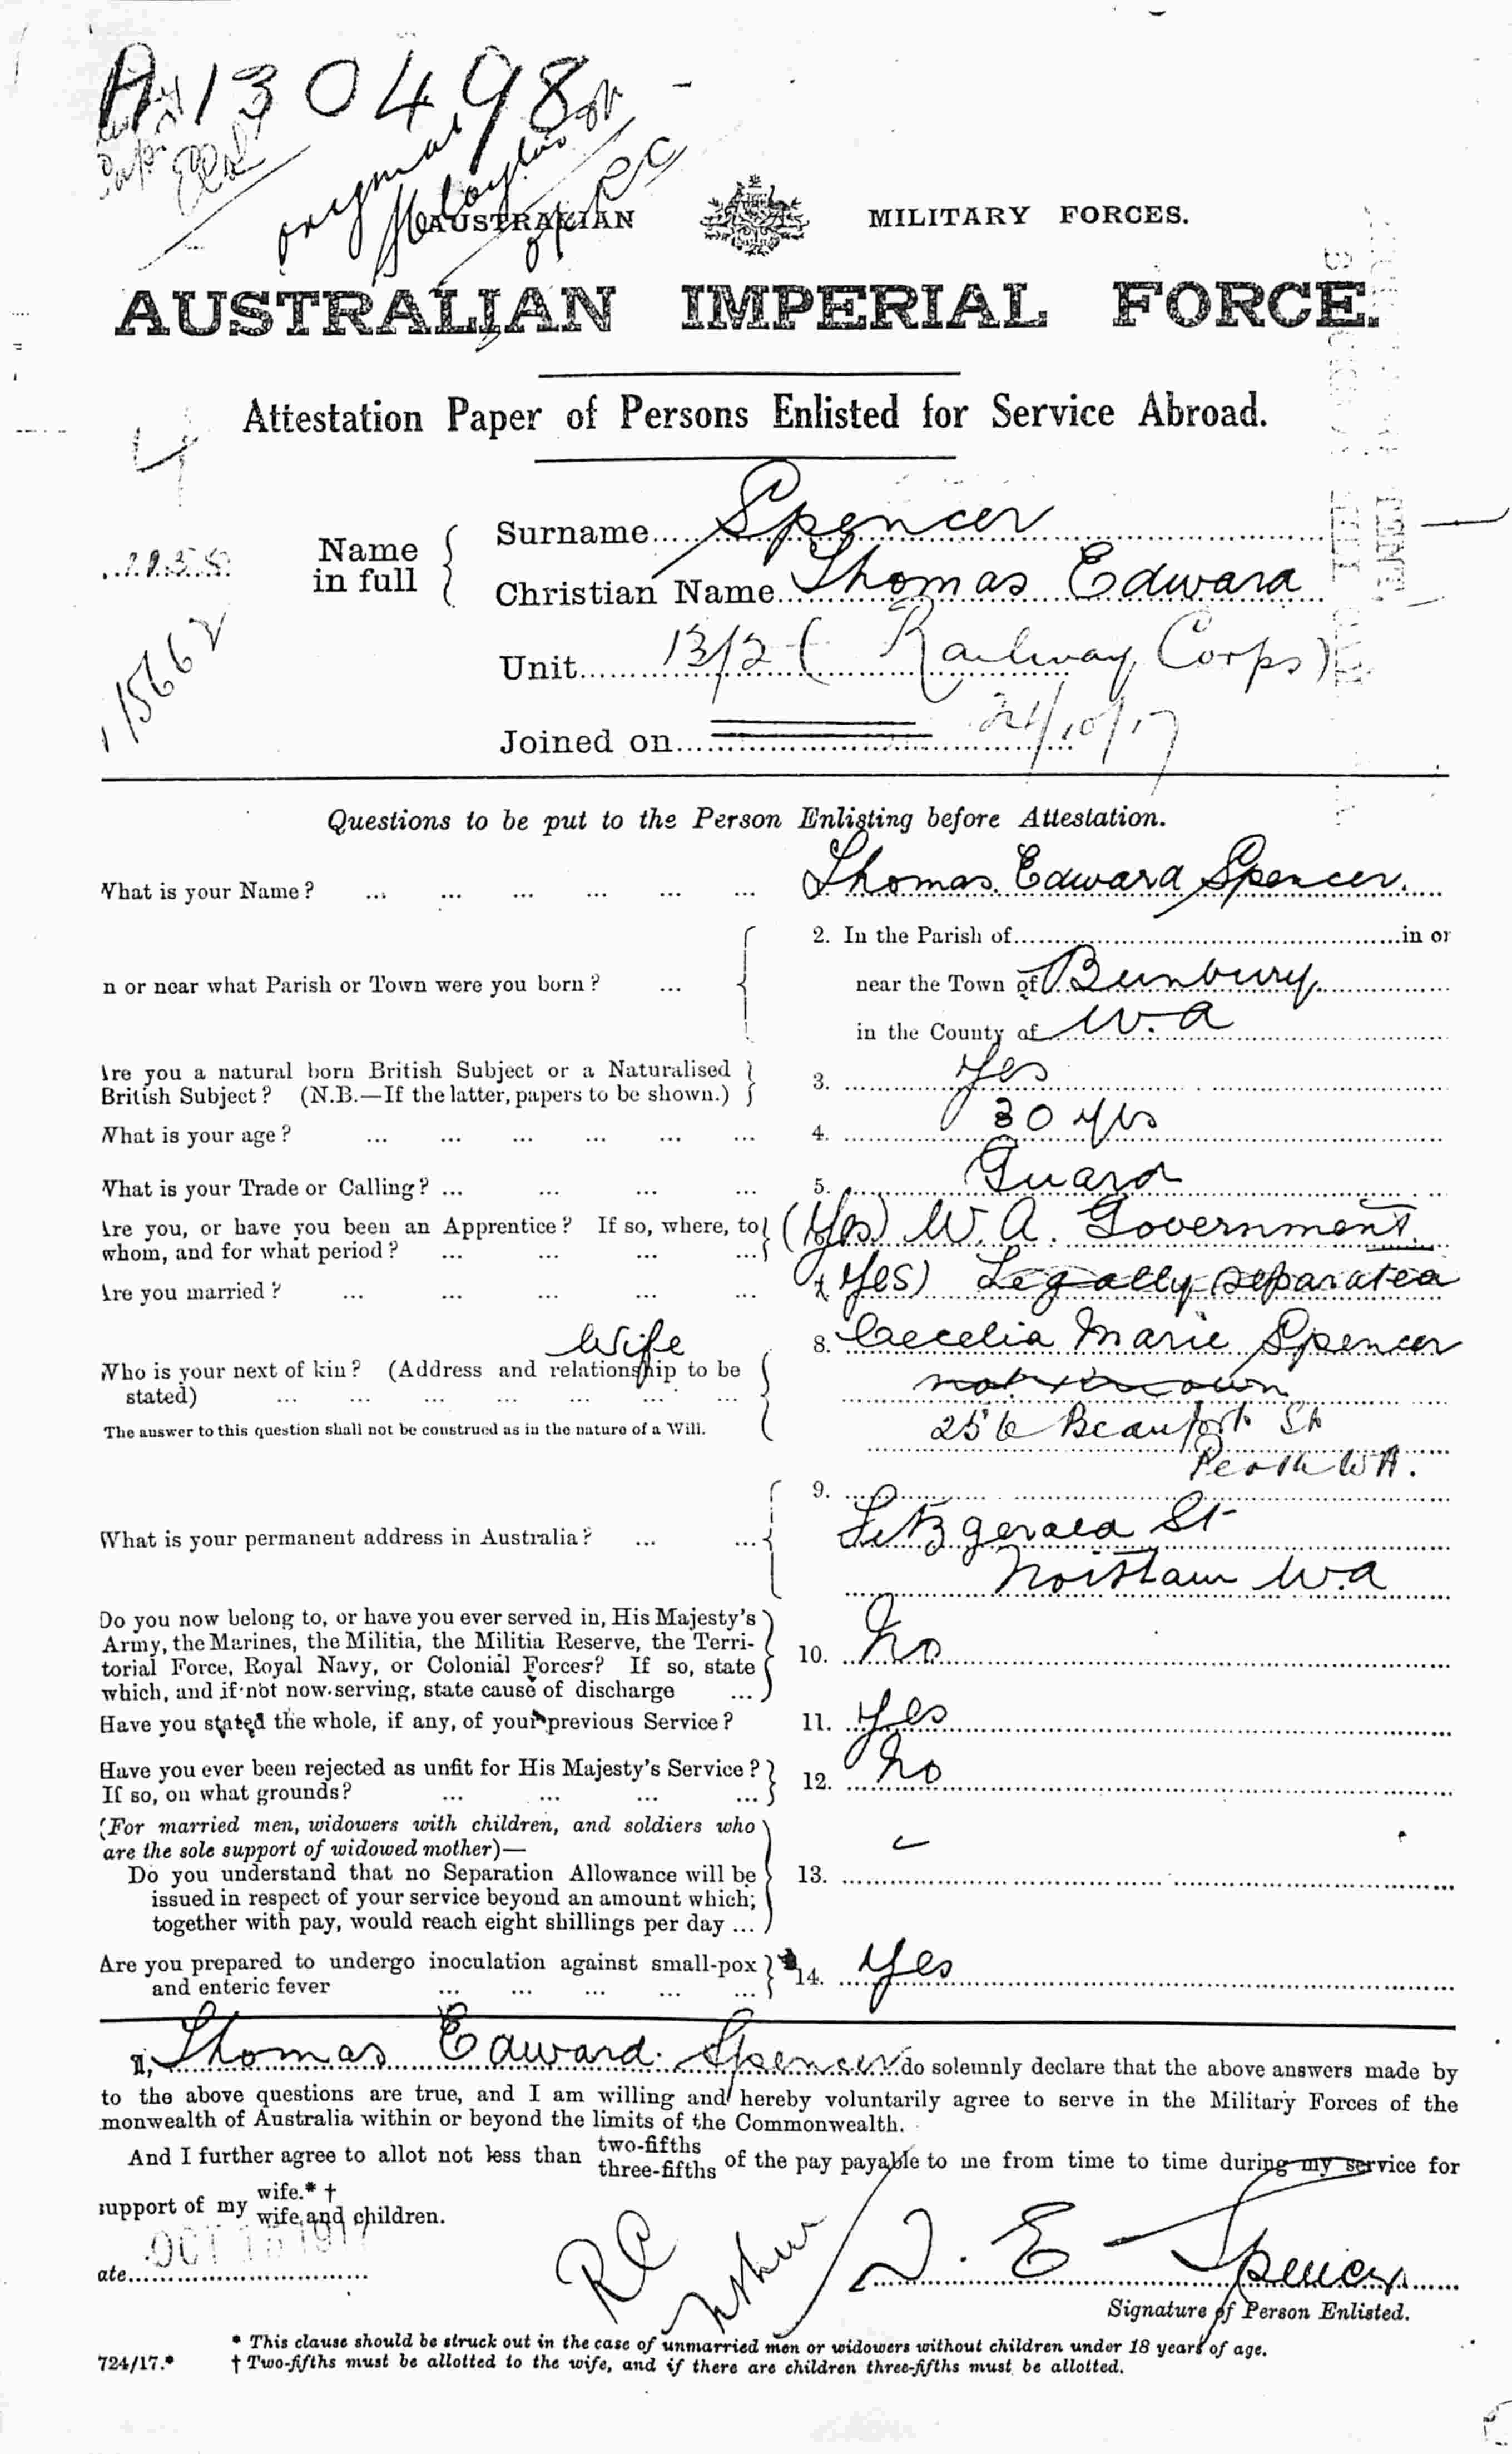 A 130498
original
RC
AUSTRALIAN MILITARY FORCES.
AUSTRALIAN IMPERIAL FORCE.
Attestation Paper of Persons Enlisted for Service Abroad.
4
Name in full
Surname Spencer
Christian Name Thomas Edward
115662
Unit 13/2 (Railway Corps)
Joined on 24/10/17
Questions to be put to the Person Enlisting before Attestation.
What is your Name? ... ... ... ... ... ... Thomas Edward Spencer.
2. In the Parish of in or
n or near what Parish or Town were you born? ... near the Town of Bunbury
in the County of W.A
Are you a natural born British Subject or a Naturalised
British Subject? (N.B.—If the latter, papers to be shown.) 3. Yes
What is your age? ... ... ... ... ... ... 4. 30 yrs
What is your Trade or Calling? ... ... ... ... 5. Guard
Are you, or have you been an Apprentice? If so, where, to
whom, and for what period? ... ... ... ... (Yes) W.A. Government.
Are you married? ... ... ... ... ... ... (Yes) Legally separated
Wife
8. Cecelia Marie Spencer
Who is your next of kin? (Address and relationship to be
stated) ... ... ... ... ... ... ... not known
The answer to this question shall not be construed as in the nature of a Will.
256 Beaufort St
Perth WA.
9.
What is your permanent address in Australia? ... ... Fitzgerald St
Northam W.A
Do you now belong to, or have you ever served in, His Majesty's
Army, the Marines, the Militia, the Militia Reserve, the Terri-
torial Force, Royal Navy, or Colonial Forces? If so, state
which, and if not now serving, state cause of discharge ... 10. No
Have you stated the whole, if any, of your previous Service? 11. Yes
Have you ever been rejected as unfit for His Majesty's Service?
If so, on what grounds? ... ... ... ... 12. No
(For married men, widowers with children, and soldiers who
are the sole support of widowed mother)—
Do you understand that no Separation Allowance will be
issued in respect of your service beyond an amount which,
together with pay, would reach eight shillings per day ... 13.
Are you prepared to undergo inoculation against small-pox
and enteric fever ... ... ... ... ... 14. Yes
I, Thomas Edward Spencer do solemnly declare that the above answers made by
to the above questions are true, and I am willing and hereby voluntarily agree to serve in the Military Forces of the
monwealth of Australia within or beyond the limits of the Commonwealth.
And I further agree to allot not less than two-fifths three-fifths of the pay payable to me from time to time during my service for
support of my wife.* † wife and children.
OCT 15 1917
ate
RC
T. E Spencer
Signature of Person Enlisted.
* This clause should be struck out in the case of unmarried men or widowers without children under 18 years of age.
724/17.* † Two-fifths must be allotted to the wife, and if there are children three-fifths must be allotted.